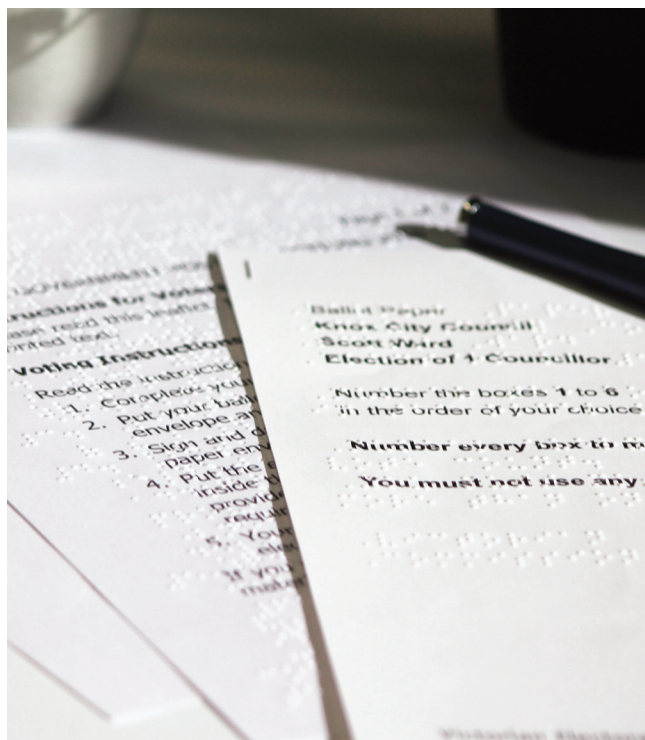 ructions for Voters
ase read this leaflet
Voting Instructions
Read the instruction
1. Complete your
2. Put your ball
envelope an
3. Sign and d
paper env
4. Put the
inside th
provid
requir
5. Your
ele
If you
mater
Ballot Paper
Knox City Council
Scott Ward
Election of 1 Councillor
Number the boxes 1 to 6
in the order of your choice
Number every box to m
You must not use any